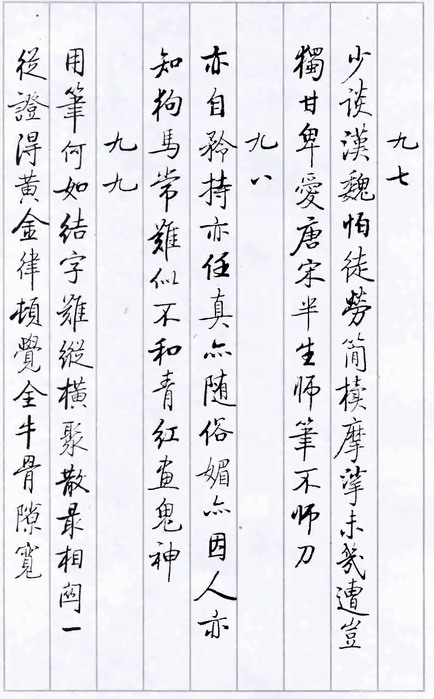 九七
少談漢魏怕徒勞簡牘摩挲未幾遭豈
獨甘卑愛唐宋半生师筆不师刀
九八
亦自矜持亦任真亦随俗媚亦因人亦
知狗馬常難似不和青紅畫鬼神
九九
用筆何如結字難縱橫聚散最相關一
從證得黃金律頓覺全牛骨隙寬